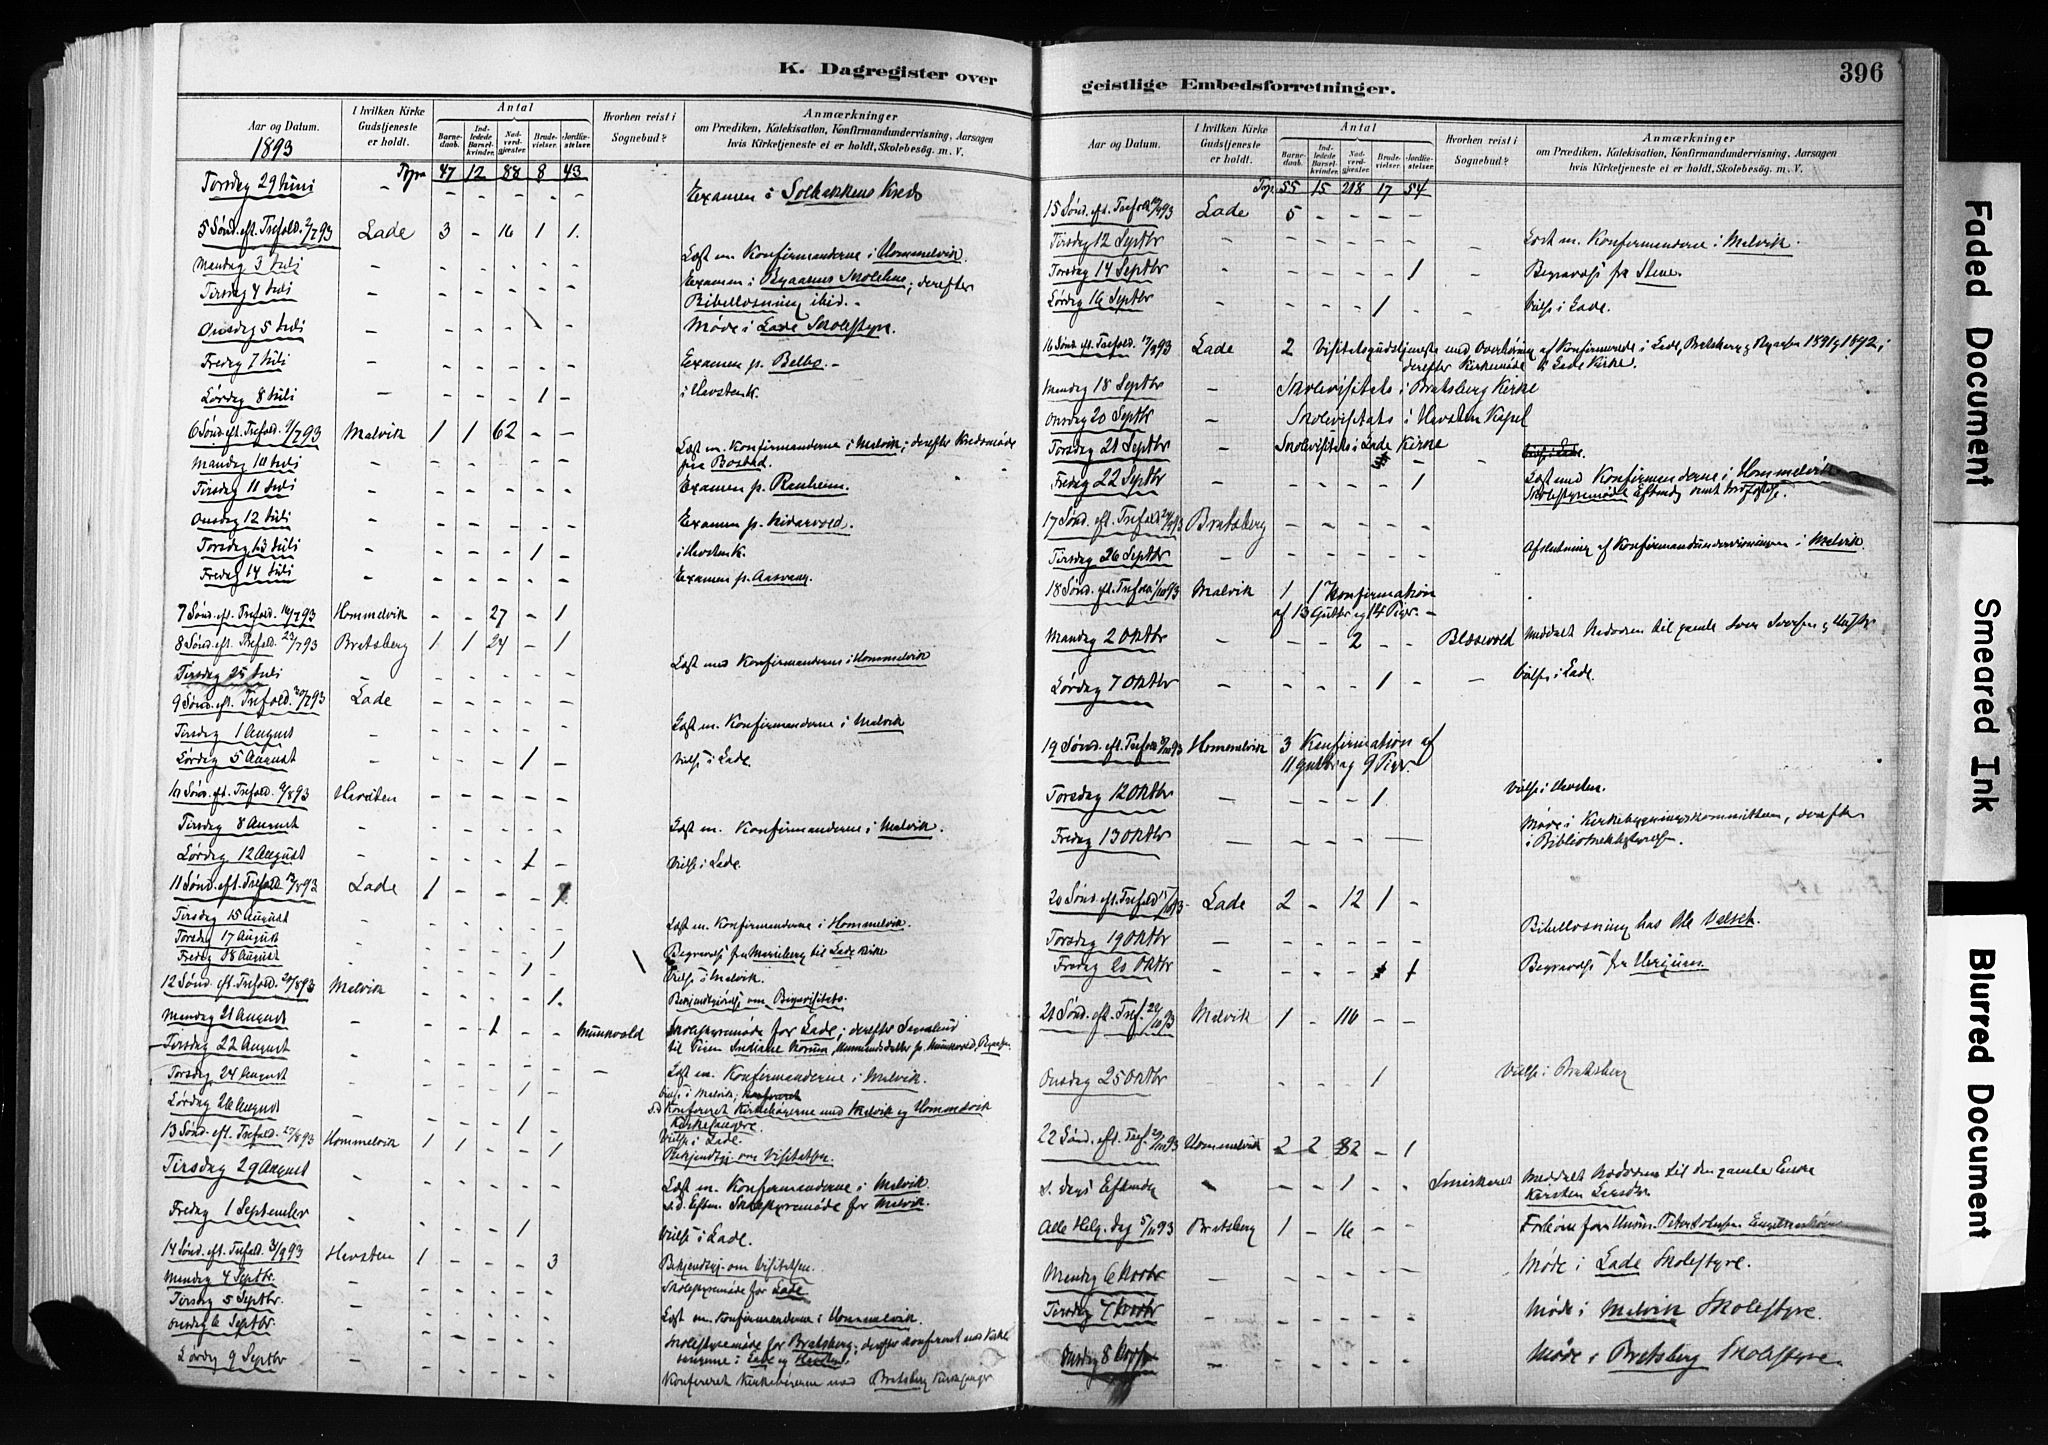 K. Dagregister over
Aar og Datum.
1893
I hvilken Kirke Gudstjeneste er holdt.
Antal
Barne-daab.
Ind-ledede Barsel-kvinder.
Nad-verd-gjæster.
Brude-vielser.
Jordfæ-stelser.
Hvorhen reist i Sognebud?
Anmærkninger
om Prædiken, Katekisation, Konfirmandundervisning, Aarsagen
hvis Kirketjeneste ei er holdt, Skolebesøg. m. V.
47 12 88 8 43
Torsdag 29 Juni - - - - - Examen i Solbakkens Kreds
5 Sønd. eft. Trefold. 2/7 93 Lade 3 - 16 1 1.
Mandag 3 Juli - - - - - - Læst m. Konfirmanderne i Hommelvik.
Tirsdag 4 Juli - - - - - - Examen i Byaasens Skolehus; derefter
Bibellæsning ibid. -
Onsdag 5 Juli - - - - - - Møde i Lade Skolestyre.
Fredag 7 Juli - - - - - - Examen p. Belbo. -
Lørdag 8 Juli - - - - 1 - i Havstenk.
6 Sønd. eft. Trefold. 9/7 93 Malvik 1 1 62 - -
Mandag 10 Juli - - - - - - Læst m. Konfirmanderne i Malvik; derefter Kredsmøde
paa
Tirsdag 11 Juli - - - - - - Examen p. Ranheim.
Onsdag 12 Juli - - - - - - Examen p. Nidarvold.
Torsdag 13 Juli - - - - 1 - i Havstenk.
Fredag 14 Juli - - - - - - Examen p. Aasvang.
7 Sønd. eft. Trefold. 16/7 93 Hommelvik - - 27 - 1
8 Sønd. eft. Trefold. 23/7 93 Bratsberg 1 1 24 - 1
Tirsdag 25 Juli - - - - - - Læst med Konfirmanderne i Hommelvik
9 Sønd. eft. Trefold. 30/7 93 Lade - - - - -
Tirsdag 1 August - - - - - - Læst m. Konfirmanderne i Malvik
Lørdag 5 August - - - - 1 - Vielse i Lade.
10 Sønd. eft. Trefold. 6/8 93 Havsten - - - - -
Tirsdag 8 August - - - - - - Læst m. Konfirmanderne i Malvik.
Lørdag 12 August - - - - 1 - Vielse i Lade.
11 Sønd. eft. Trefold. 13/8 93 Lade 1 - - - 1
Tirsdag 15 August - - - - - - Læst m. Konfirmanderne i Hommelvik.
Torsdag 17 August - - - - - 1 Begravelse fra Marieberg til Lade Kirke
Fredag 18 August - - - - 1 - Vielse i Malvik.
12 Sønd. eft. Trefold. 20/8 93 Malvik - - - - 1. Bekjendtgjørelse om Bispevisitats.
Mandag 21 August - - - 1 - - Munkvold Skolestyremøde for Lade; derefter Sognebud
Tirsdag 22 August - - - - - - til Pigen
Torsdag 24 August - - - - - - Læst m. Konfirmanderne i Malvik.
Lørdag 26 August - - - - 1 - Vielse i Malvik;
s.d. Konfereret Kirkebøgerne med Malvik og Hommelvik
Kirkesangere.
13 Sønd. eft. Trefold. 27/8 93 Hommelvik 1 1 - - 1 Vielse i Lade.
Bekjendtgj. om Visitatsen.
Tirsdag 29 August - - - - - - Læst m. Konfirmanderne i Malvik
s.d. Eftm. Skolestyremøde for Malvik.
Fredag 1 September - - - - 1 - Vielse i Lade.
14 Sønd. eft. Trefold. 3/9 93 Havsten 1 - - - 3 Bekjendtgj. om Visitatsen.
Mandag 4 Septbr. - - - - - - Skolestyremøde for Lade.
Tirsdag 5 Septbr. - - - - - - Læst m. Konfirmanderne i Hommelvik.
Onsdag 6 Septbr. - - - - - - Skolestyremøde for Bratsberg; derefter konfereret med Kirke-
sangerne i Lade og Havsten.
Lørdag 9 Septbr - - - - - - Konfereret Kirkebøgerne med Bratsberg Kirkesanger
geistlige Embedsforretninger.
396
Aar og Datum.
I hvilken Kirke Gudstjeneste er holdt.
Antal
Barne-daab.
Ind-ledede Barsel-kvinder.
Nad-verd-gjæster.
Brude-vielser.
Jordfæ-stelser.
Hvorhen reist i Sognebud?
Anmærkninger
om Prædiken, Katekisation, Konfirmandundervisning, Aarsagen
hvis Kirketjeneste ei er holdt, Skolebesøg. m. V.
55 15 218 17 54
15 Sønd. eft. Trefold. 10/9 93 Lade 5 - - - -
Tirsdag 12 Septbr - - - - - - Læst m. Konfirmanderne i Malvik.
Torsdag 14 Septbr - - - - - 1 Begravelse fra Stene.
Lørdag 16 Septbr - - - - 1 - Vielse i Lade.
16 Sønd. eft. Trefold. 17/9 93 Lade 2 Visitatsgudstjeneste med Overhøring af Konfirmerede i Lade, Bratsberg og Byaasen 1891 og 1892;
derefter Kirkemøde i Lade Kirke.
Mandag 18 Septbr - Skolevisitats i Bratsberg Kirke
Onsdag 20 Septbr - Skolevisitats i Havsten Kapel
Torsdag 21 Septbr - Skolevisitats i Lade Kirke
Fredag 22 Septbr - - - - - 1 Læst med Konfirmanderne i Hommelvik
Skolestyremøde Eftmdg
17 Sønd. eft. Trefold. 24/9 93 Bratsberg - - - - -
Tirsdag 26 Septbr - - - - - - Afslutning af Konfirmandundervisningen i Malvik.
18 Sønd. eft. Trefold. 1/10 93 Malvik 1 1 Konfirmation
af 13 Gutter og 14 Piger. -
Mandag 2 Oktbr - - - 2 - - Blæsevold Meddelt Nadveren til gamle
Lørdag 7 Oktbr - - - - 1 - - Vielse i Lade.
19 Sønd. eft. Trefold. 8/10 93 Hommelvik 3 Konfirmation af
11 Gutter og 9 Piger.
Torsdag 12 Oktbr - - - - 1 Vielse i Havsten.
Fredag 13 Oktbr - - - - - - Møde i Kirkebygningskommitteen, derefter
i Bibliothekbestyrelse.
20 Sønd. eft. Trefold. 15/10 93 Lade 2 - 12 1 -
Torsdag 19 Oktbr - - - - - - Bibellæsning hos Ole Valseth.
Fredag 20 Oktbr - - - - 1 Begravelse fra
21 Sønd. eft. Tref. 22/10 93 Malvik 1 - 116 - -
Onsdag 25 Oktbr - - - - 1 - Vielse i Bratsberg
22 Sønd. eft. Tref. 29/10 93 Hommelvik 2 2 82 - 1
s. dags Eftmdg - - 1 - - Meddelt Nadveren til den gamle Enke
Karsten
Alle Helg. dag 5/11 93 Bratsberg 1 - 16 - -
Mandag 6 Novbr - - - - - - Møde i Lade Skolestyre.
Tirsdag 7 Novbr - - - - - - Møde i Malvik Skolestyre.
Onsdag 8 Novbr - - - - - - Møde i Bratsberg Skolestyre.
Faded Document
Smeared Ink
Blurred Document